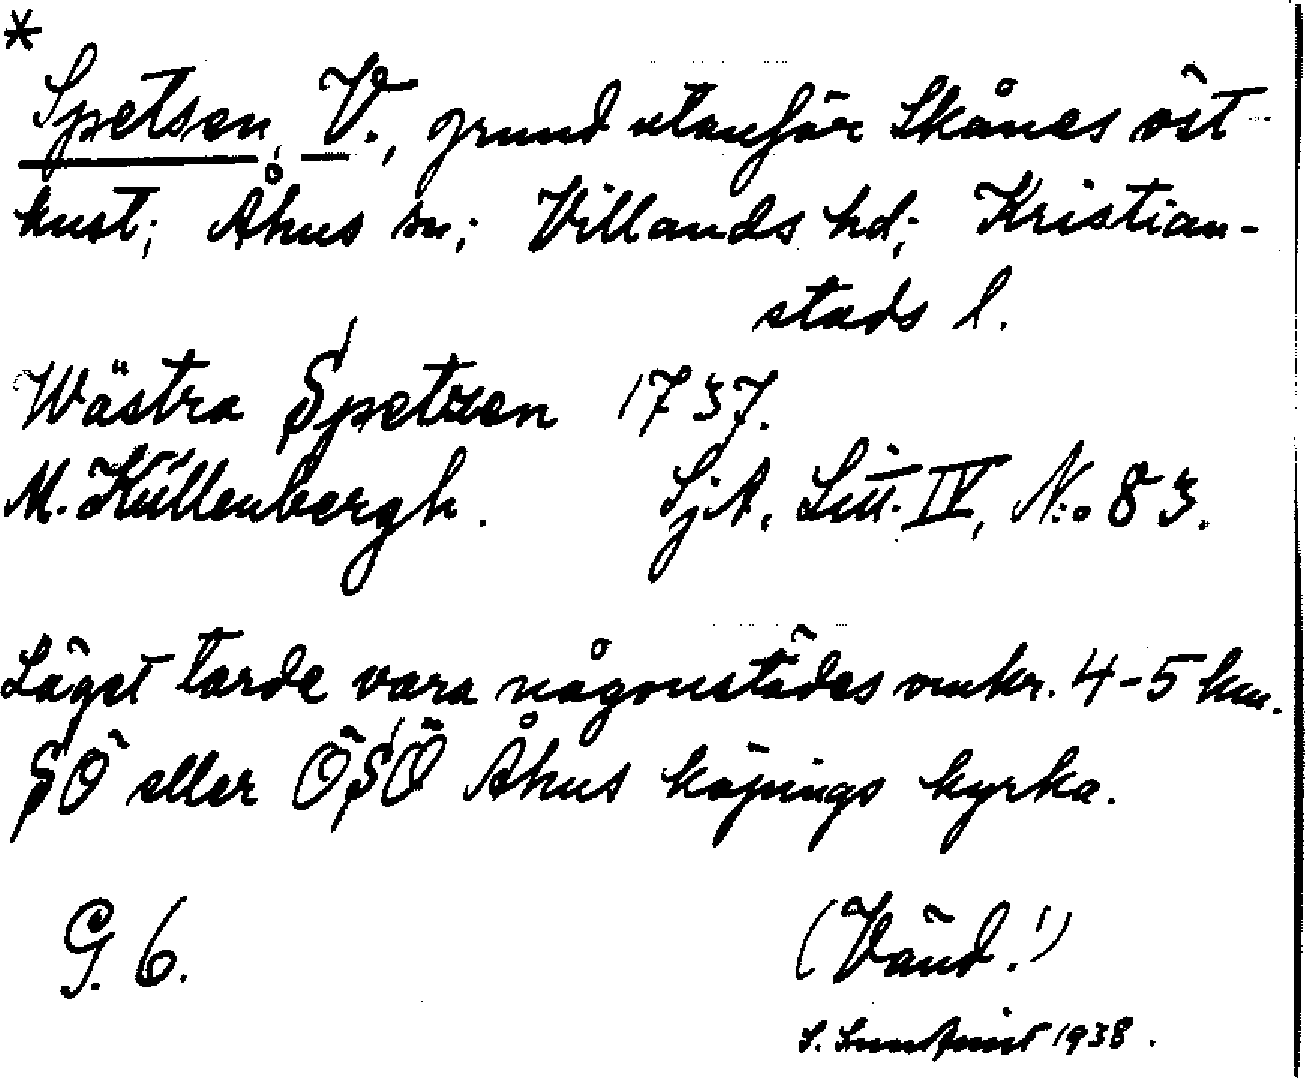 *
Spetsen, V., grund utanför Skånes öst-
kust; Åhus sn; Villands hd; Kristian-
stads l.
Wästra Spetzen 1737.
M. Küllenbergh. SjA, Litt. IV, N:o 83.
Läget torde vara någonstädes omkr. 4-5 km.
SÖ eller ÖSÖ Åhus köpings kyrka.
G. 6. (Vänd!)
S. 1938.